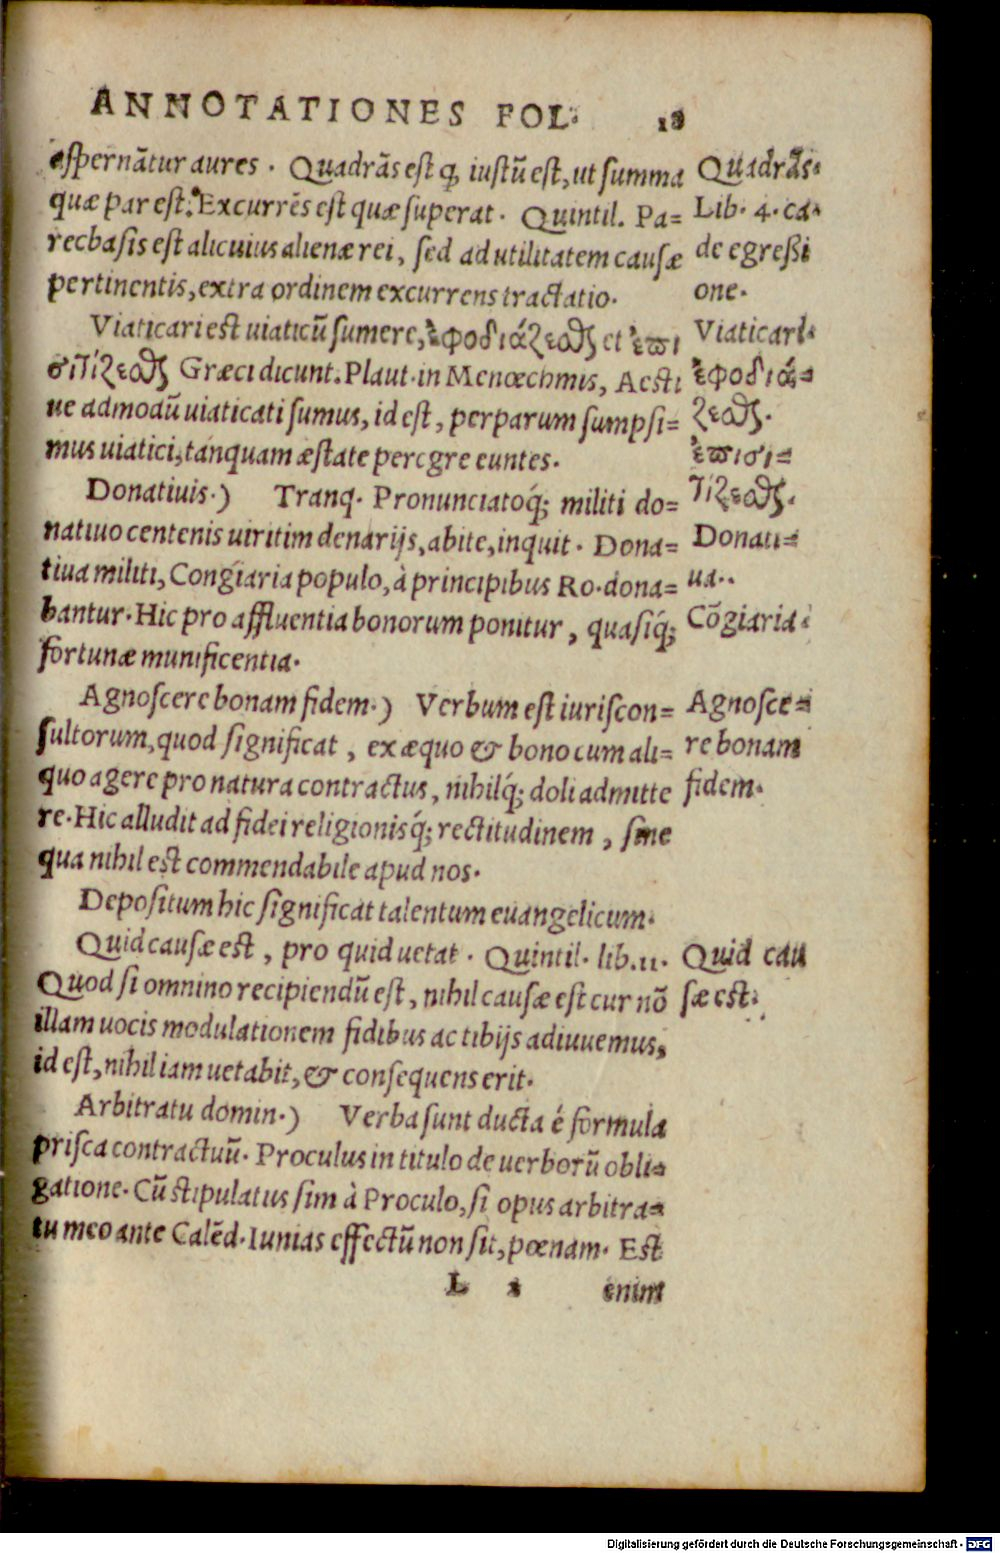 ANNOTATIONES FOL. 18
aspernãtur aures . Quadrãs est ꝙ iustũ est, ut summa
quæ par est. Excurrẽs est quæ superat . Quintil. Pa=
recbasis est alicuius alienæ rei , sed ad utilitatem causæ
pertinentis, extra ordinem excurrens tractatio.
Viaticari est uiaticũ sumere, ἐφοδιάζεσθαι et ἐπι
σιτίζεσθαι Græci dicunt. Plaut. in Menœchmis, Aesti
ue admodũ uiaticati sumus, id est , perparum sumpsi=
mus uiatici, tanquam æstate peregre euntes.
Donatiuis.) Tranq. Pronunciatoq́; militi do=
natiuo centenis uiritim denarijs, abite, inquit . Dona=
tiua militi, Congiaria populo, à principibus Ro. dona=
bantur. Hic pro affluentia bonorum ponitur , quasiq́;
fortunæ munificentia.
Agnoscere bonam fidem.) Verbum est iuriscon=
sultorum, quod significat , ex æquo & bono cum ali=
quo agere pro natura contractus , nihilq́; doli admitte
re. Hic alludit ad fidei religionisq́; rectitudinem , sine
qua nihil est commendabile apud nos.
Depositum hic significat talentum euangelicum.
Quid causæ est , pro quid uetat . Quintil. lib. 11.
Quod si omnino recipiendũ est , nihil causæ est cur nõ
illam uocis modulationem fidibus ac tibijs adiuuemus,
id est, nihil iam uetabit, & consequens erit.
Arbitratu domin.) Verba sunt ducta é formula
prisca contractuũ. Proculus in titulo de uerborũ obli=
gatione. Cũ stipulatus sim à Proculo, si opus arbitra=
tu meo ante Calẽd. Iunias effectũ non sit, pœnam. Est
L 2 enim
Quadrãs.
Lib. 4. ca.
de egreßi
one.
Viaticari.
ἐφοδιά=
ζεσθαι.
ἐπισι=
τίζεσθαι.
Donati=
ua..
Cõgiaria.
Agnosce=
re bonam
fidem.
Quid cau
sæ est.
Digitalisierung gefördert durch die Deutsche Forschungsgemeinschaft - DFG